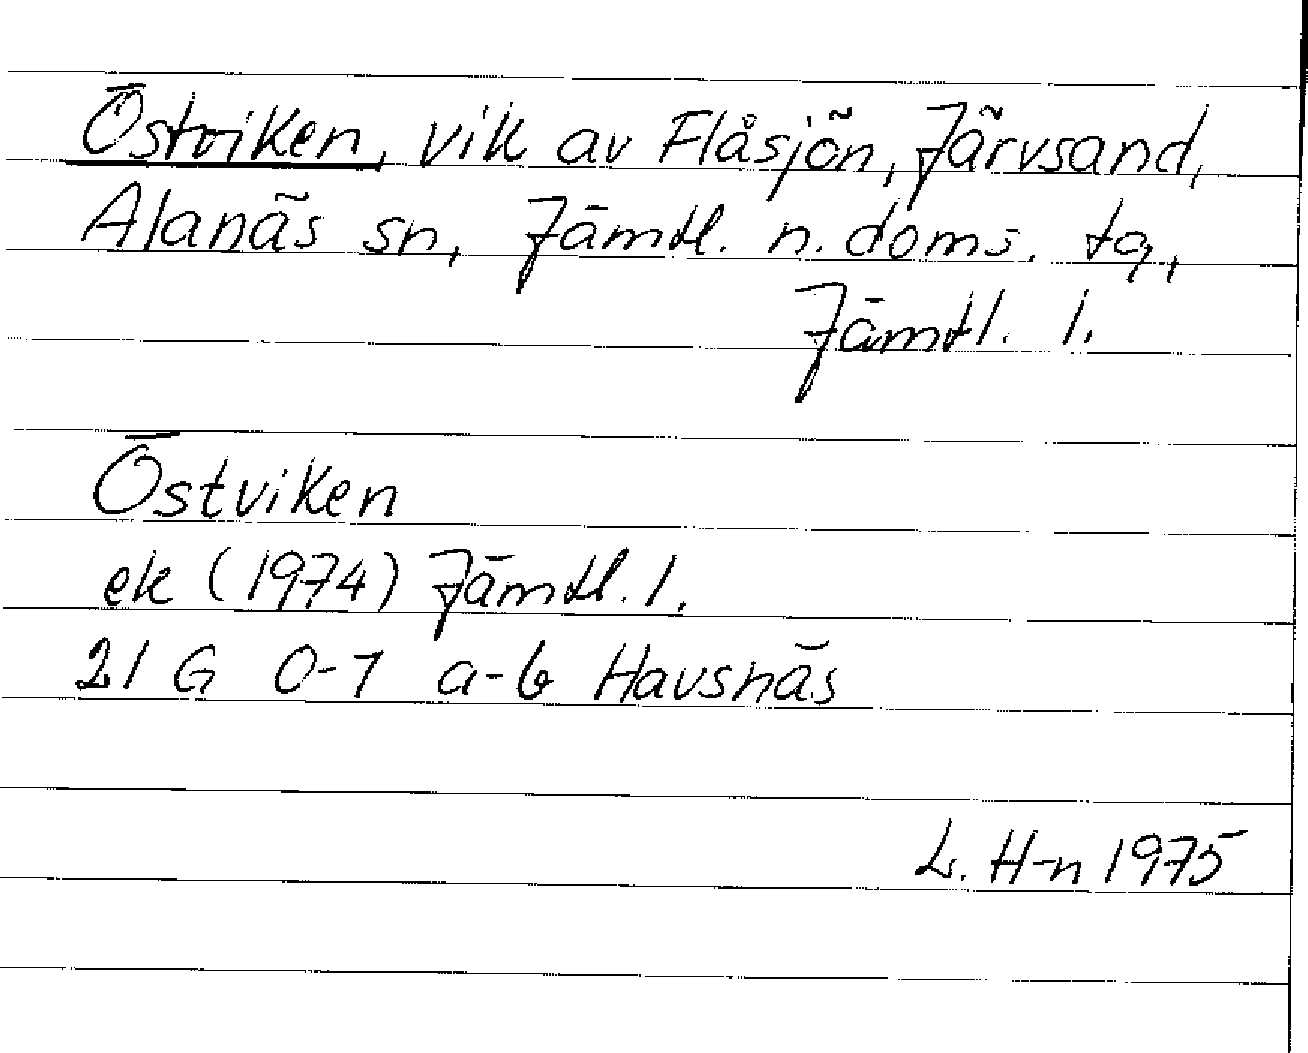 Östviken, vik av Flåsjön, Järvsand,
Alanäs sn, Jämtl. n. doms. tg,
Jämtl. l.
Östviken
ek (1974) Jämtl. l.
21 G 0-1 a-b Havsnäs
L. H-n 1975